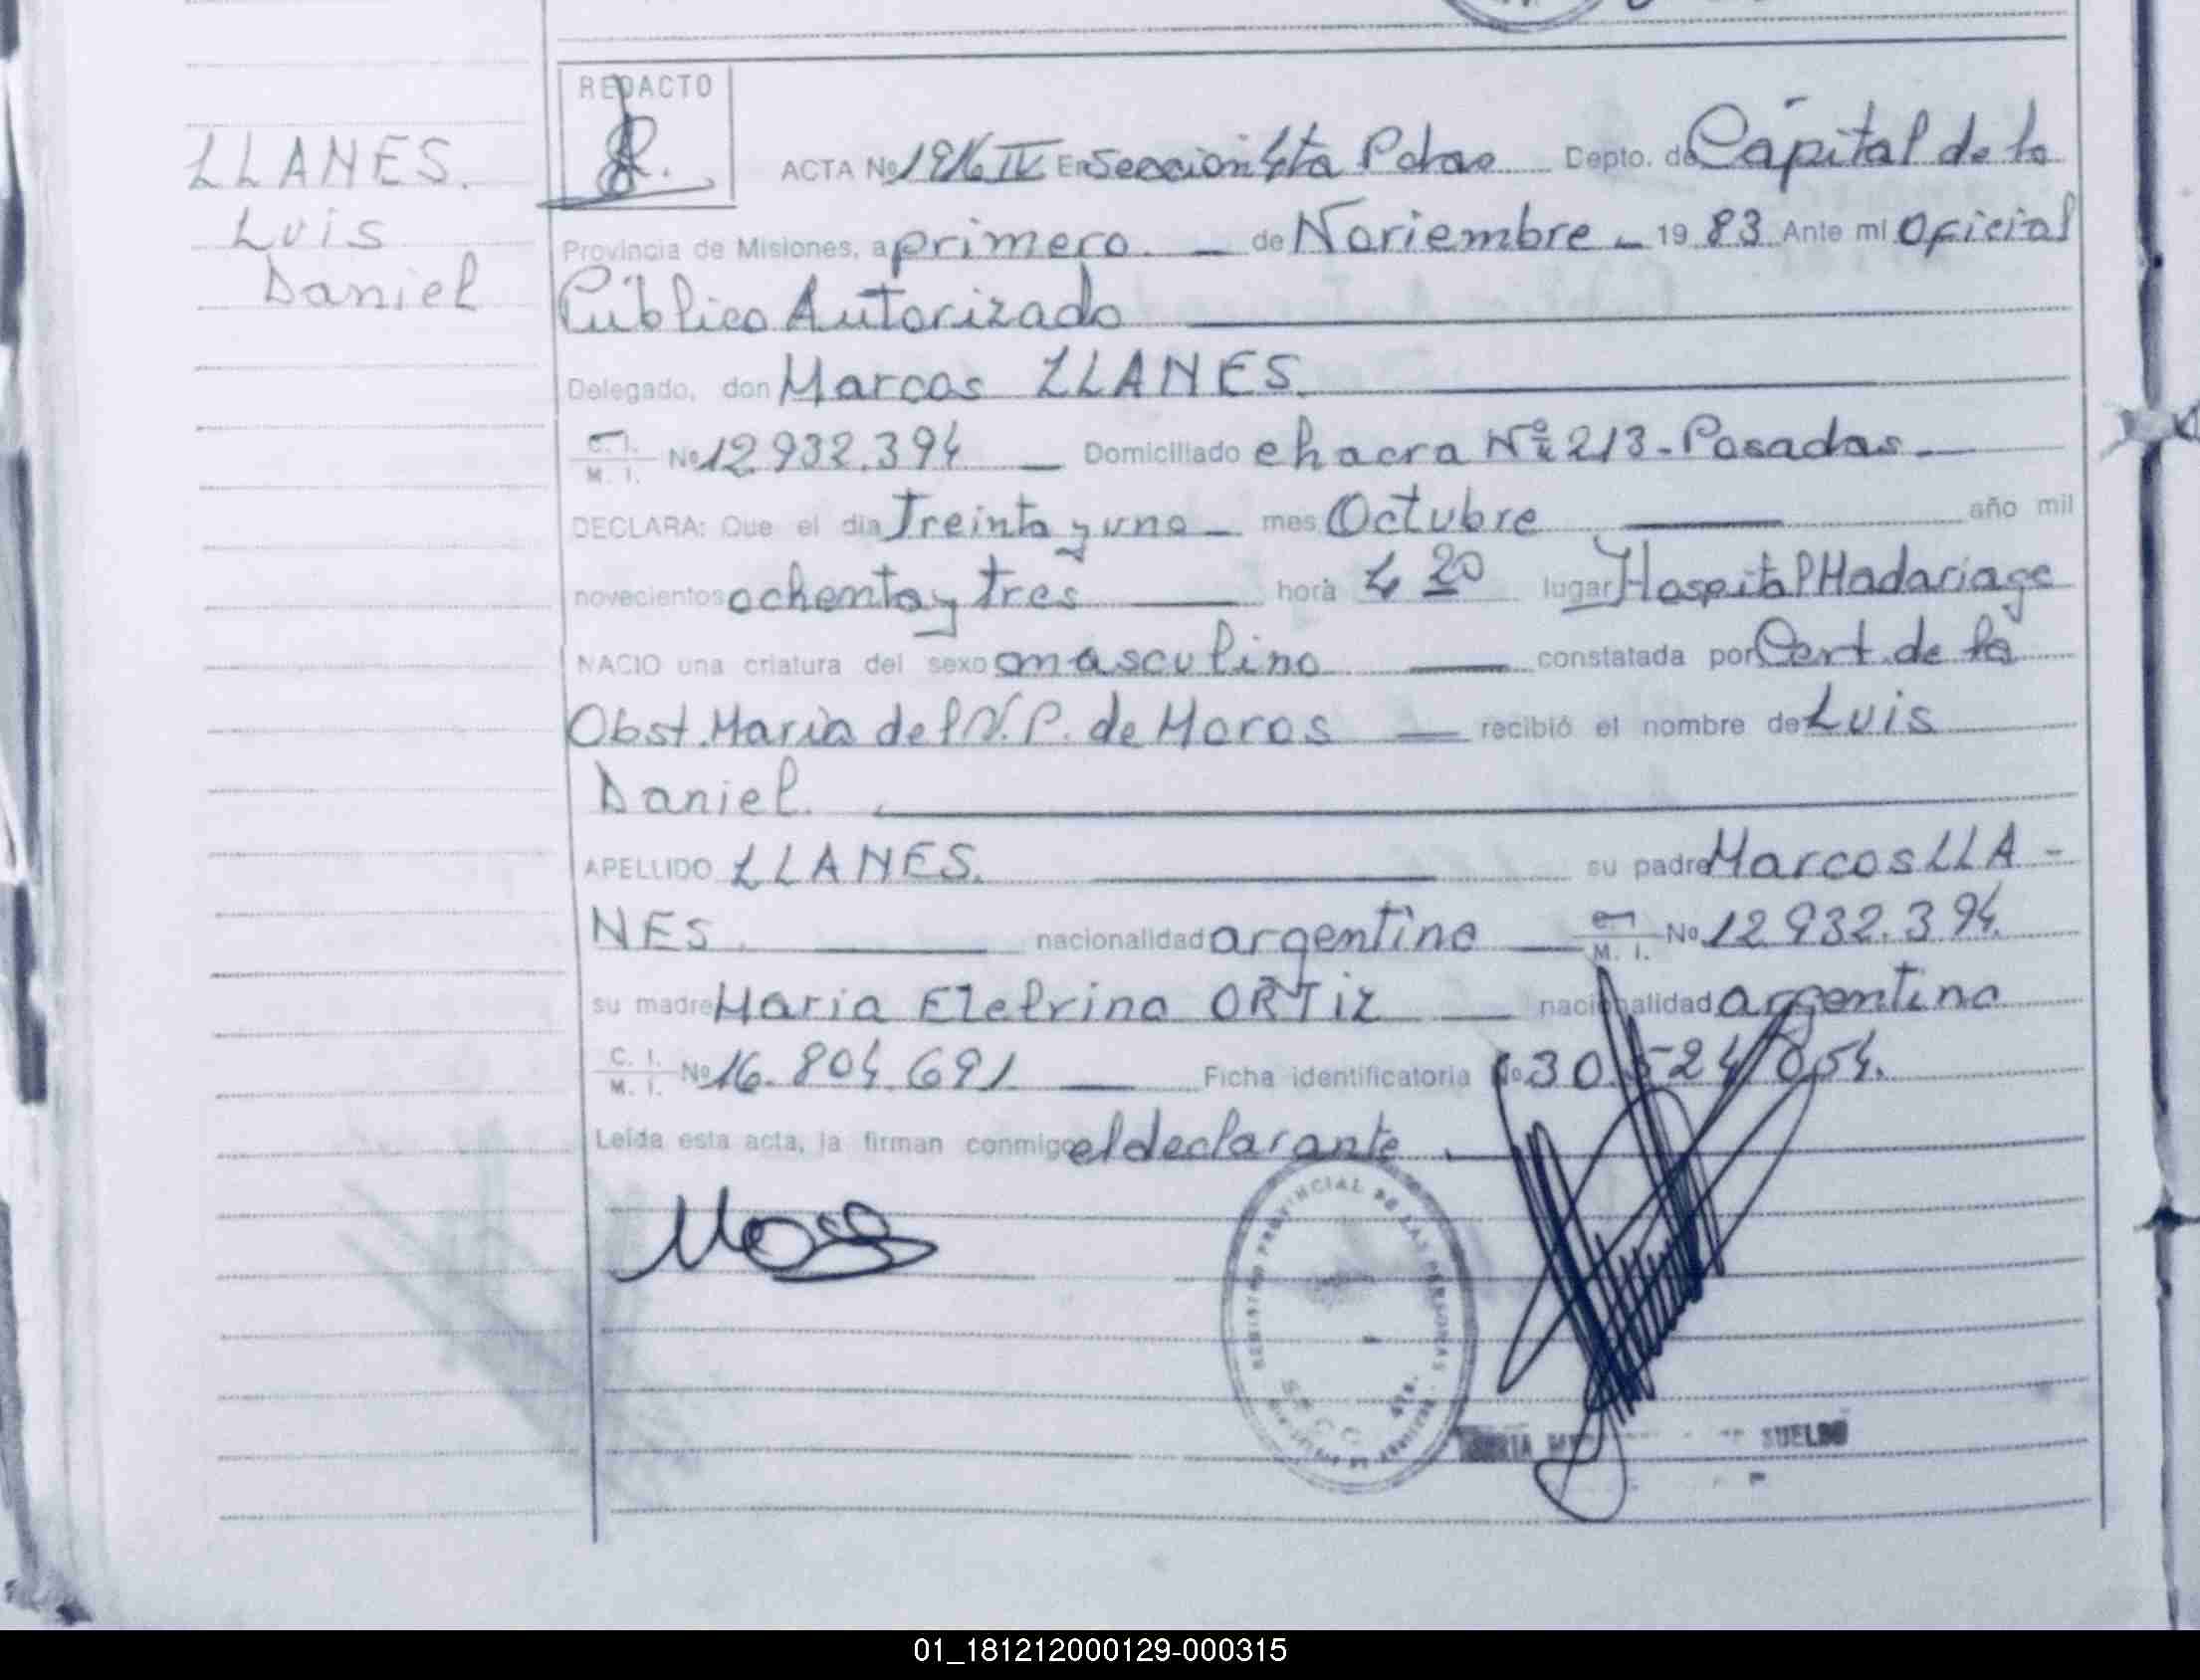 REDACTO
LLANES.
Luis
Daniel
ACTA Nº 1916 IV En Sección 4ta Pdas Depto. de Capital de la
Provincia de Misiones, a primero. — de Noviembre - 19 83 Ante mi Oficial
Público Autorizado
Delegado, don Marcos LLANES.
C. I. / M. I. Nº 12.932.394 — Domiciliado chacra Nº 213 - Posadas -
DECLARA: Que el día Treinta y uno - mes Octubre — año mil
novecientos ochenta y tres — hora 4 20 lugar Hospital Madariaga
NACIO una criatura del sexo masculino — constatada por Cert. de la
Obst. María del N. P. de Moros — recibió el nombre de Luis
Daniel.
APELLIDO LLANES. — su padre Marcos LLA -
NES. — nacionalidad argentino — C. I. / M. I. Nº 12.932.394.
su madre María Etelvina ORTiz — nacionalidad argentina
C. I. / M. I. Nº 16.804.691 — Ficha identificatoria Nº 30.524.054.
Leída esta acta, la firman conmigo el declarante.
REGISTRO PROVINCIAL DE LAS PERSONAS
SECC. 4ta.
SUELDO
01_181212000129-000315